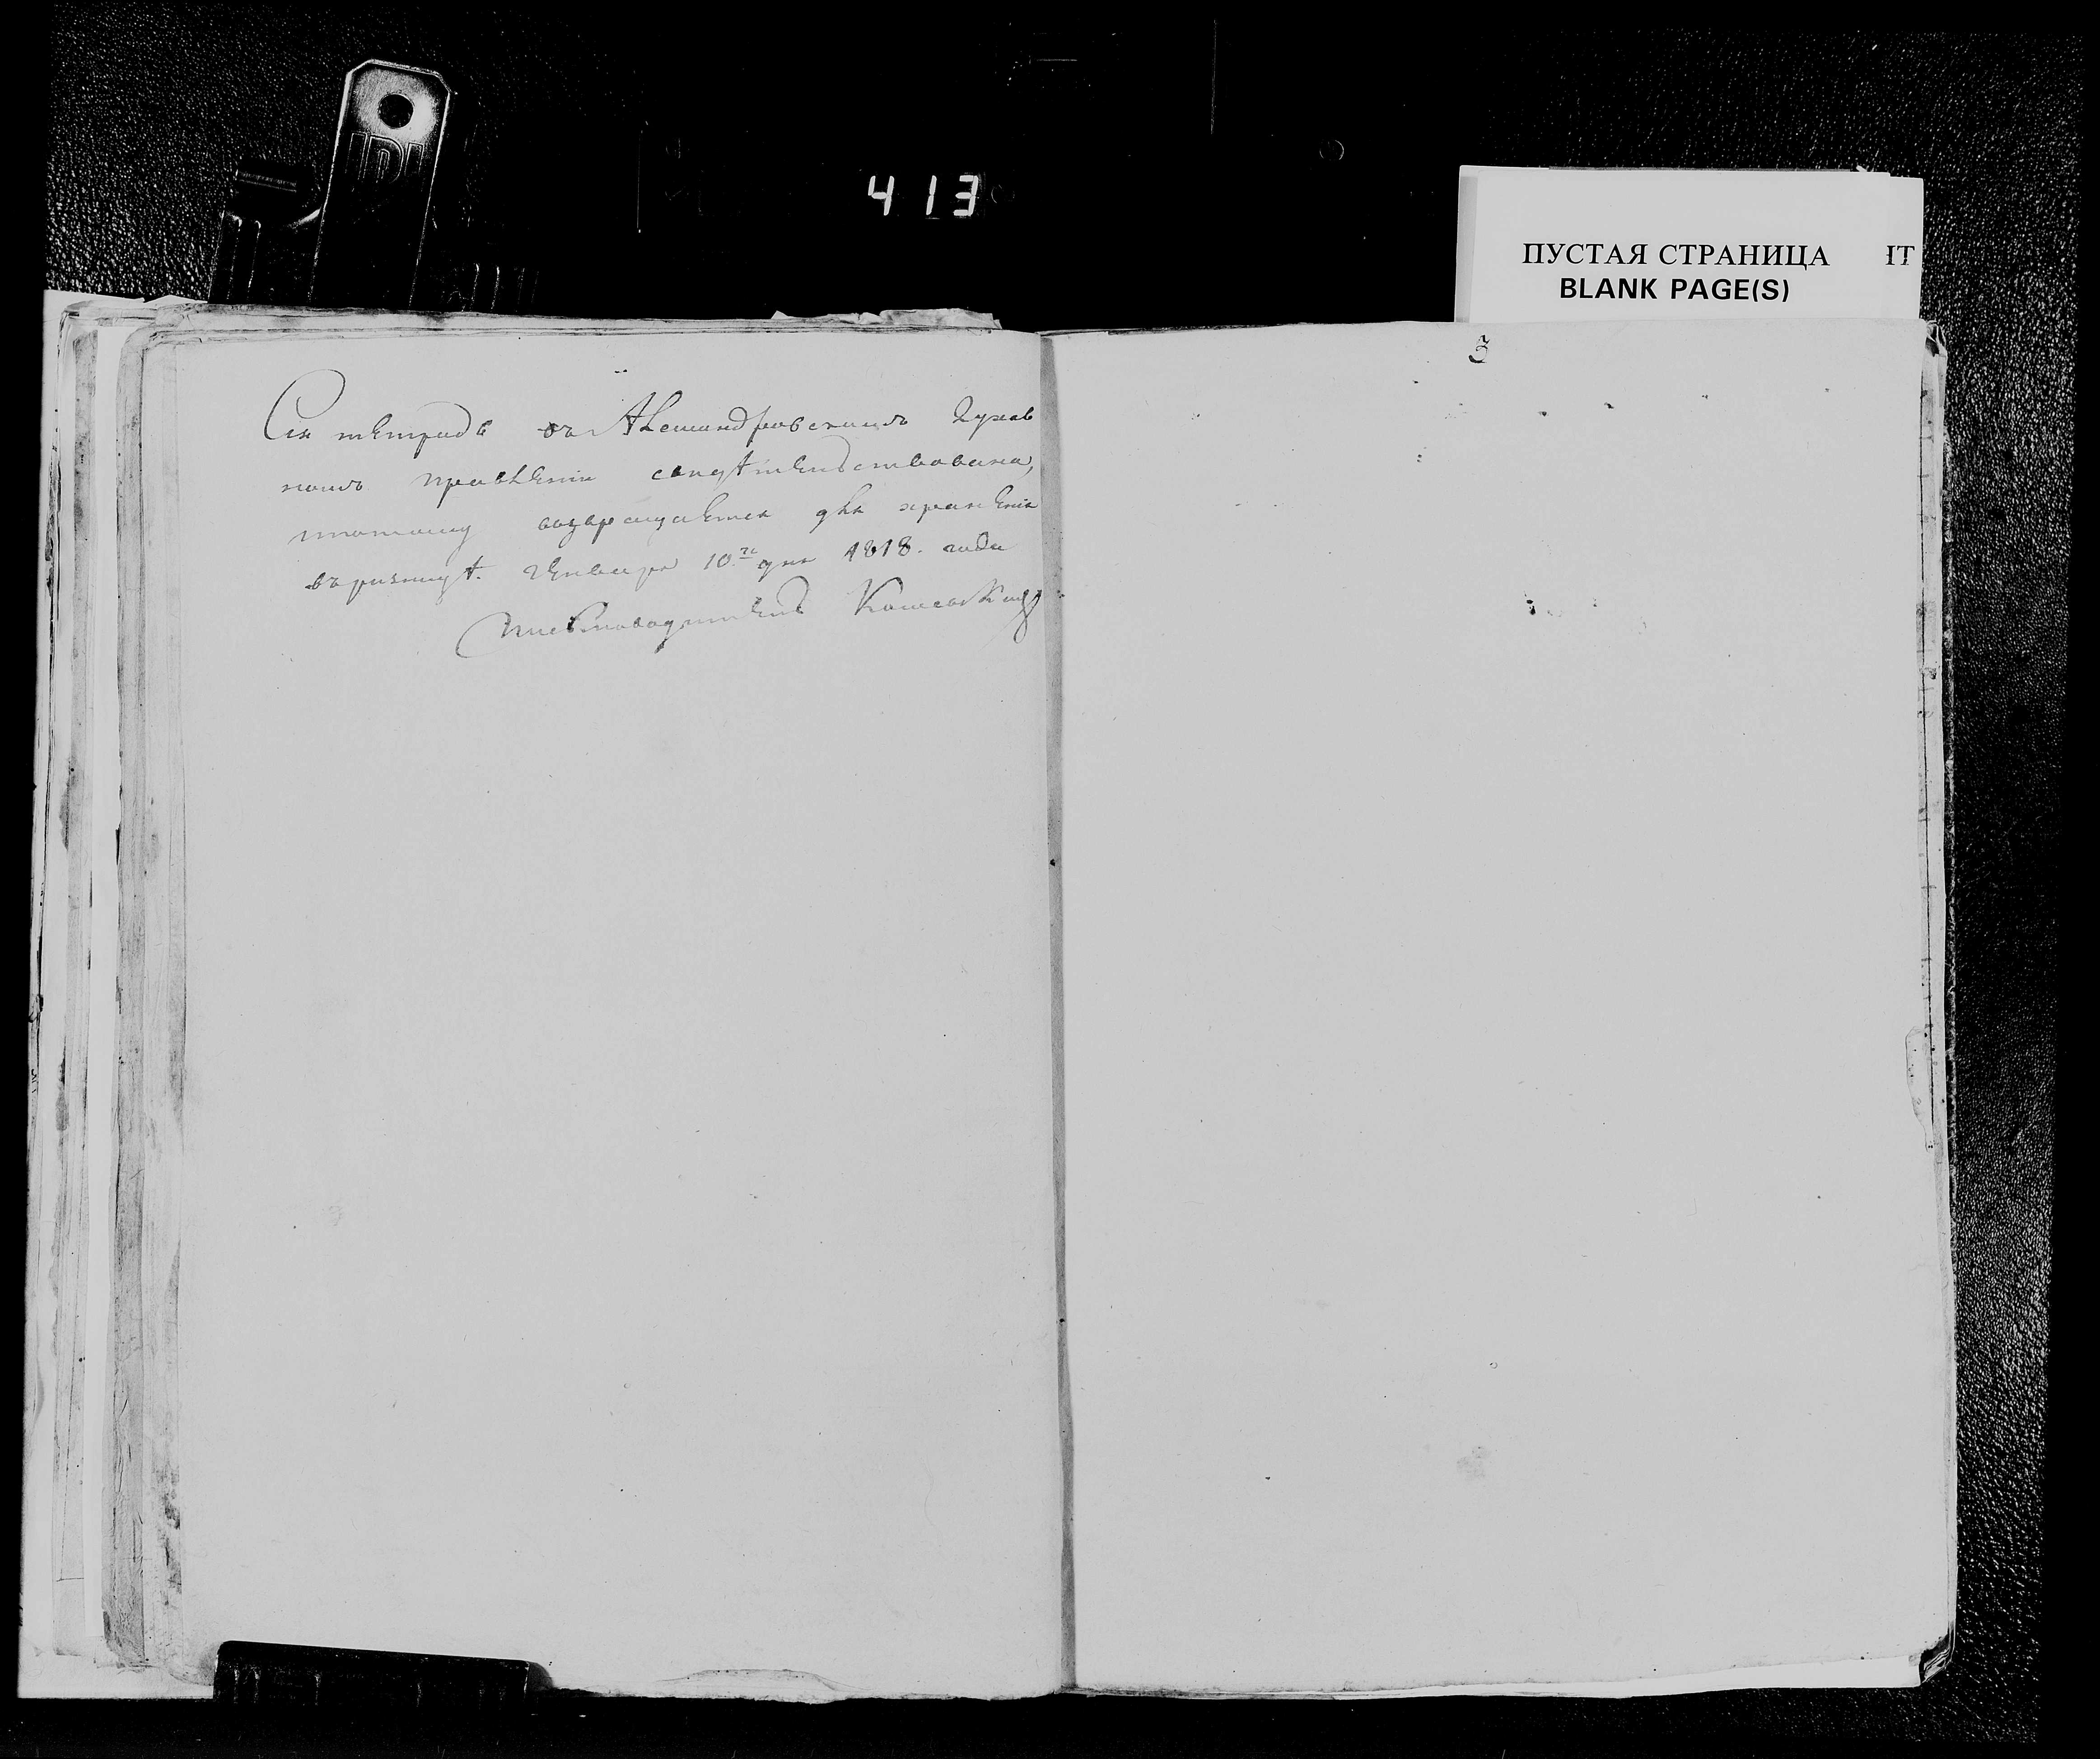 413
ПУСТАЯ СТРАНИЦА
BLANK PAGE(S)
ІТ
3
Сия тетрадь въ Александровскомъ Духов
номъ правленіи свидѣтельствована,
потому возвращается для храненія
въ ризницѣ. Генваря 10.го дня 1818. года
Письмоводитель